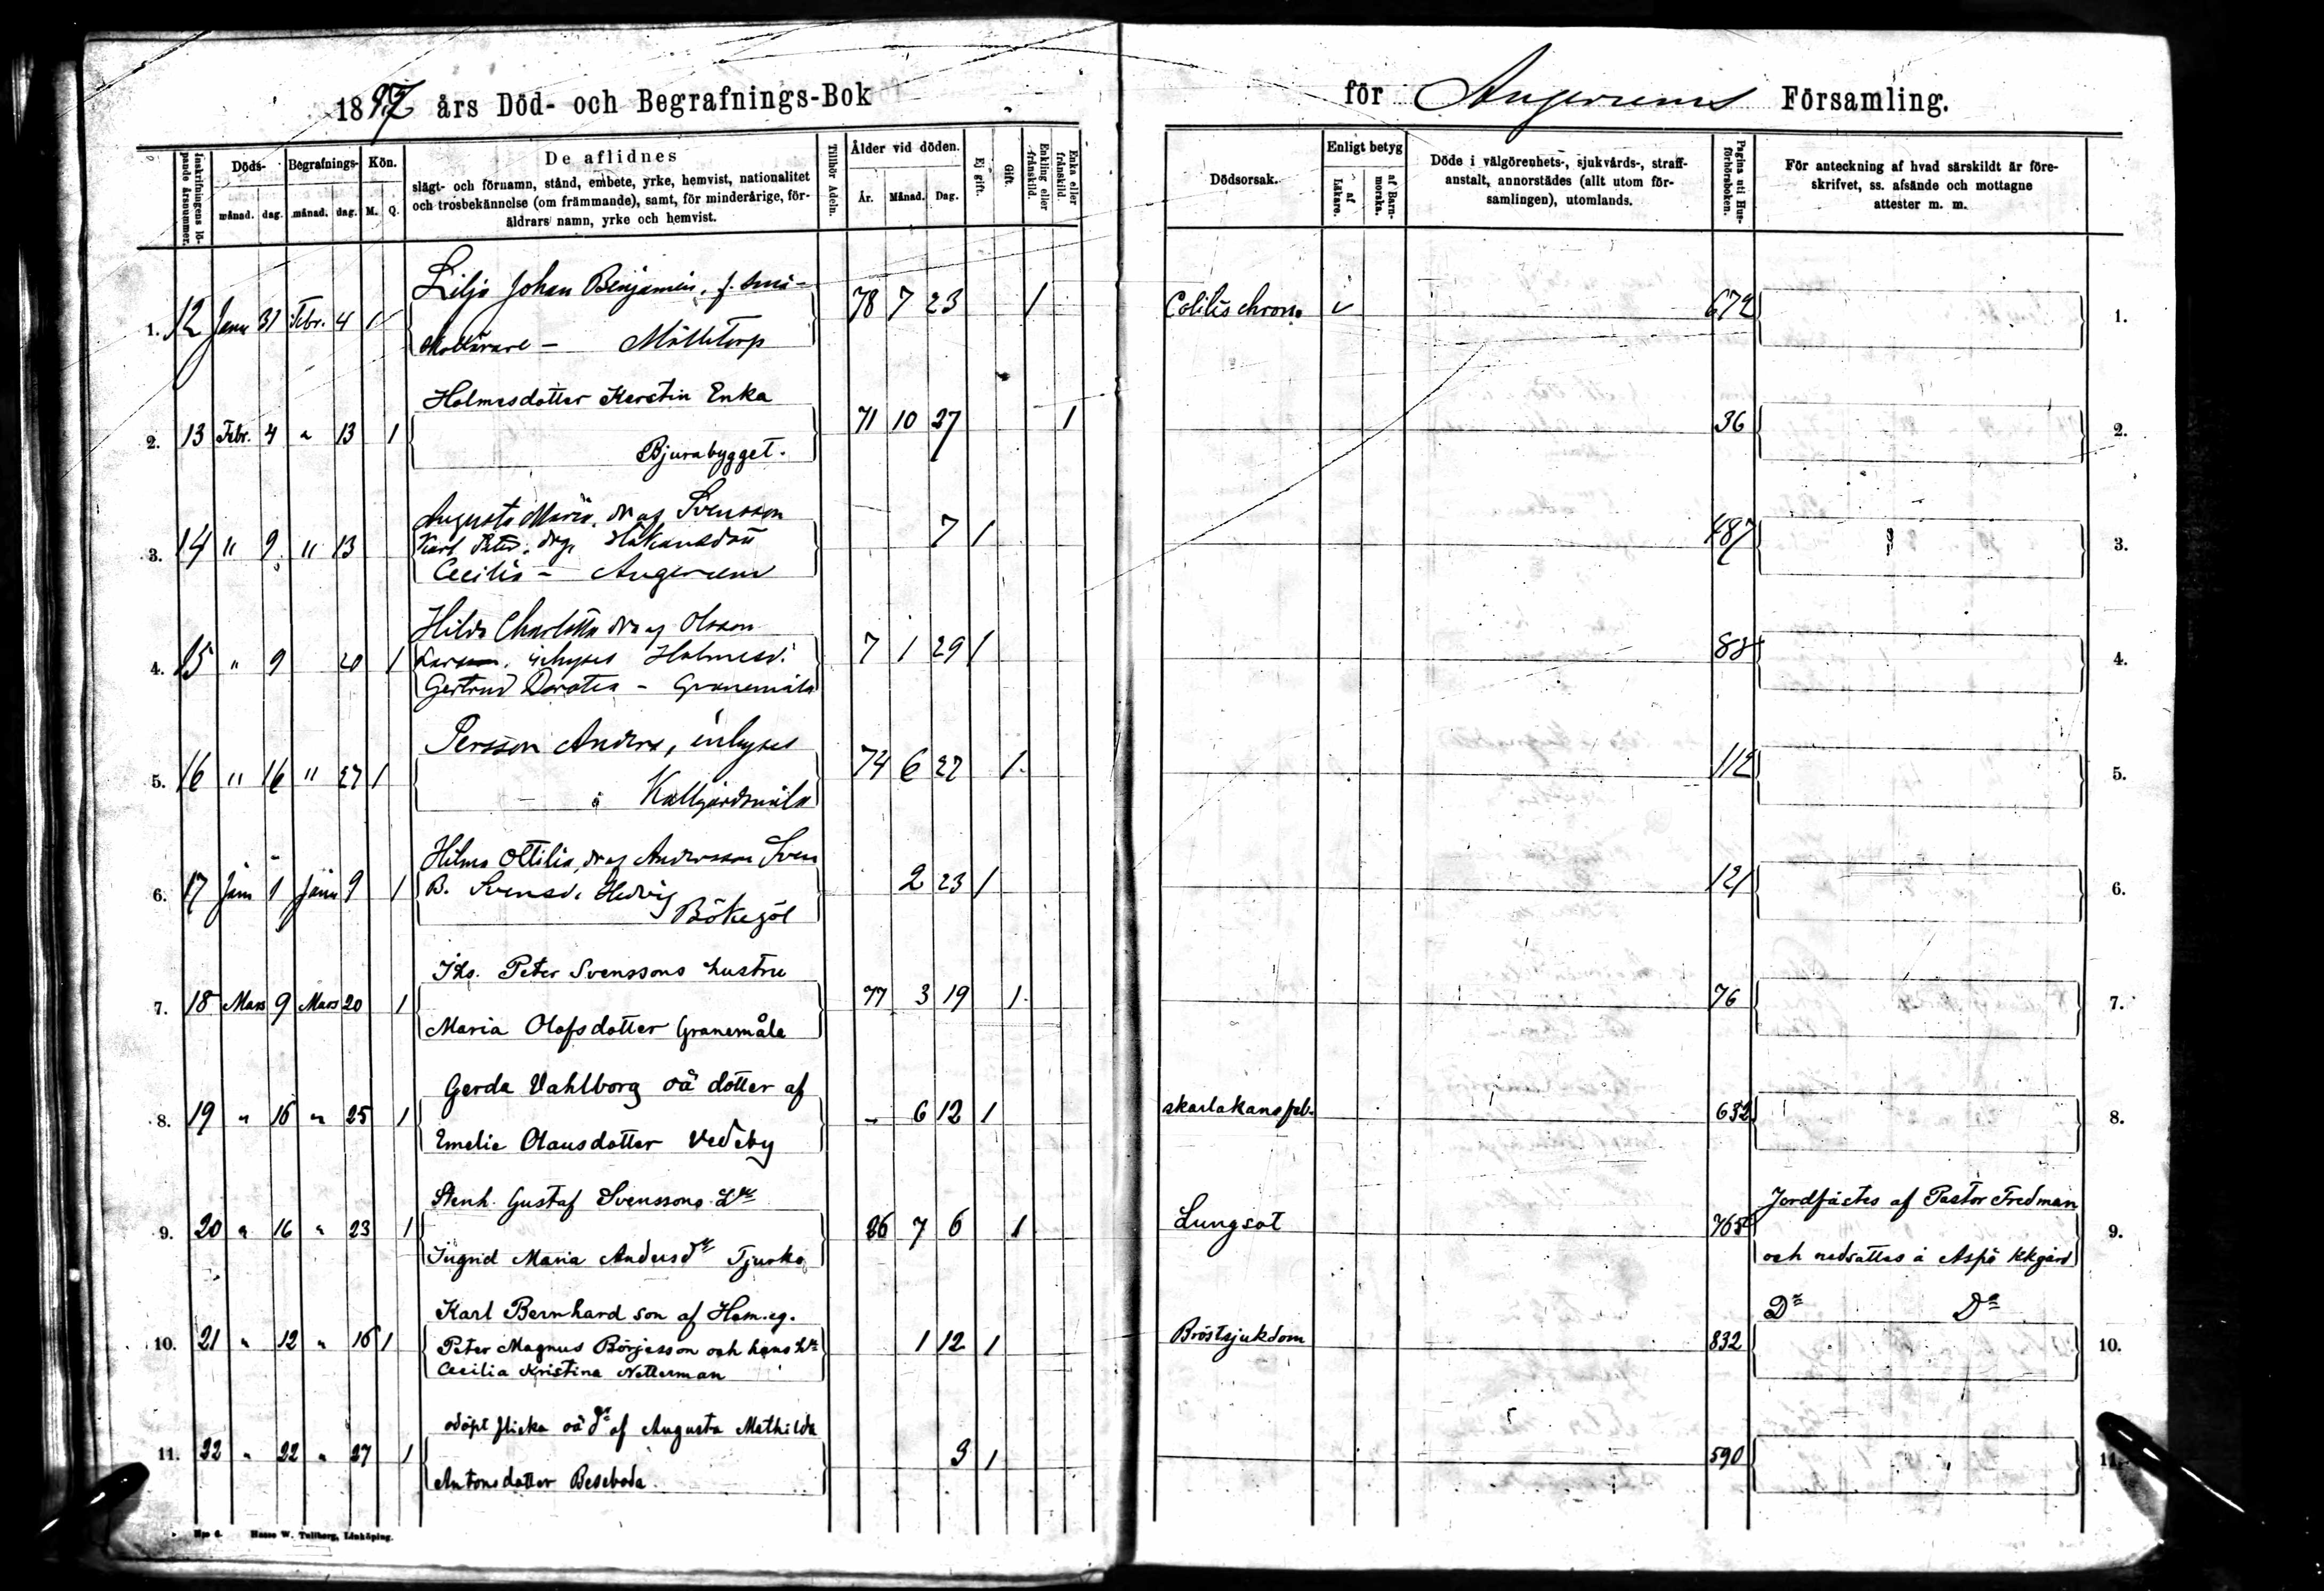 1897 års Död- och Begrafnings-Bok för Augerums Församling.
Inskrifningens löpande årsnummer. Döds- månad. dag. Begrafnings- månad. dag. Kön. M. Q.
De aflidnes
slägt- och förnamn, stånd, embete, yrke, hemvist, nationalitet
och trosbekännelse (om främmande), samt, för minderårige, för-
äldrars namn, yrke och hemvist.
Tillhör Adeln.
Ålder vid döden. År. Månad. Dag.
Ej gift. Gift. Enkling eller frånskild. Enka eller frånskild.
Dödsorsak.
Enligt betyg af Läkare. af Barnmorska.
Döde i välgörenhets-, sjukvårds-, straff-
anstalt, annorstädes (allt utom för-
samlingen), utomlands.
Pagina uti Husförhörsboken.
För anteckning af hvad särskildt är före-
skrifvet, ss. afsände och mottagne
attester m. m.
Lilja Johan Benjamin, f.
1. 12 Janu 31 Febr. 4 1 78 7 23 1 Colitis chron. 672 1.
Mölletorp
Holmesdotter Kerstin Enka
2. 13 Febr. 4 " 13 1 71 10 27 1 36 2.
Bjurabygget.
Augusta Maria, dr af Svensson
3. 14 " 9 " 13 Karl Peter, 7 1 487 3.
Cecilia - Augerum
Hilda Charlotta dr af Olsson
4. 15 " 9 20 1 inhyses Holmesd. 7 1 29 1 88 4.
Gertrud Dorotea - Granemåla
Persson Anders, inhyses
5. 16 " 16 " 27 1 74 6 22 1 112 5.
å Kallgårdsmåla
Hilma Ottilia, dr af Andersson Sven
6. 17 Jan 1 Janu 9 1 B. Svensd. Hedvig 2 23 1 121 6.
Bökegöl
Ihs. Peter Svenssons hustru
7. 18 Mars 9 Mars 20 1 77 3 19 1 76 7.
Maria Olofsdotter Granemåla
Gerda Vahlborg oä dotter af
8. 19 " 15 " 25 1 - 6 12 1 skarlakansfeb. 632 8.
Emelie Olausdotter Vedeby
Stenh. Gustaf Svenssons Hu Jordfästes af Pastor Fredman
9. 20 " 16 " 23 1 26 7 6 1 Lungsot 765 9.
Ingrid Maria Andersdr Tjurkö och nedsattes å Aspö kkgård
Karl Bernhard son af Hem.eg. Do Do
10. 21 " 12 " 16 1 Peter Magnus Börjesson och hans Hu 1 12 1 Bröstsjukdom 832 10.
Cecilia Kristina Netterman
odöpt flicka oä dr af Augusta Mathilda
11. 22 " 22 " 27 1 3 1 590 11.
Antonsdotter Beseboda
Npo 6. Hasse W. Tullberg, Linköping.